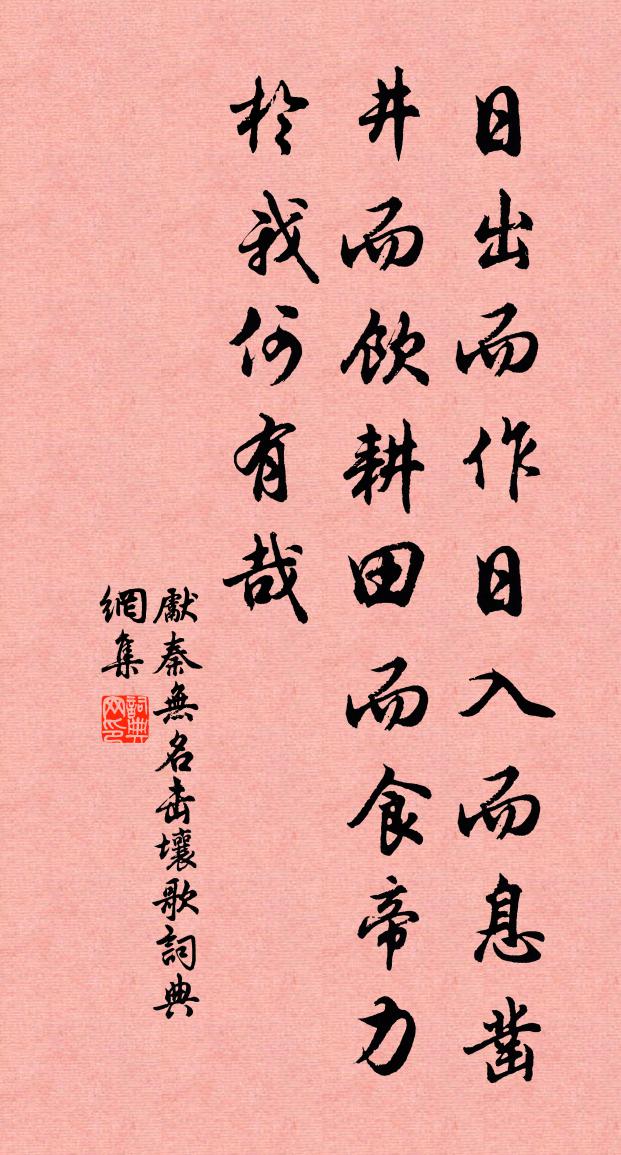 日出而作日入而息凿
井而饮耕田而食帝力
於我何有哉
獻秦無名击壤歌詞典
網集
詞典
网印